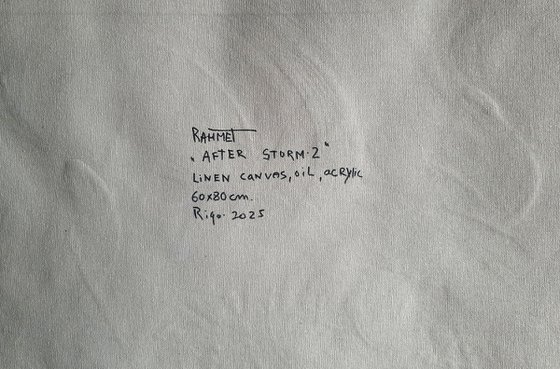 RAHMET
"AFTER STORM-2"
LINEN CANVAS, OIL, ACRYLIC
60x80cm.
Riga. 2025